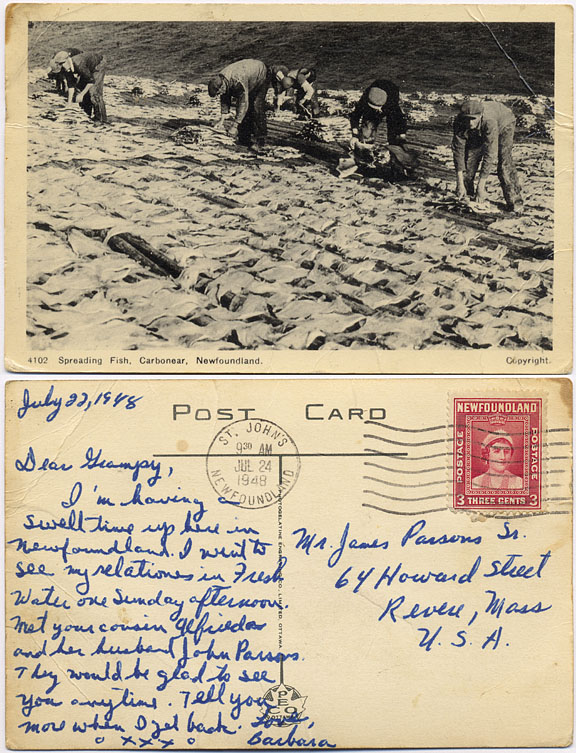 4102 Spreading Fish, Carbonear, Newfoundland.
Copyright.
July 22, 1948
POST CARD
ST. JOHN'S
9 30 AM
JUL 24
1948
NEWFOUNDLAND
NEWFOUNDLAND
POSTAGE
POSTAGE
3 THREE CENTS 3
Dear Grampy,
I'm having
swell time up here in
Newfoundland. I went to
see my relationes in Fresh
Water one Sunday afternoon.
Met your cousin Elfrieda
and her husband John Parsons.
They would be glad to see
you anytime. Tell you
more when I get back. Love,
o xxx o Barbara
Mr. James Parsons Sr.
64 Howard Street
Revere, Mass
U.S.A.
PECO